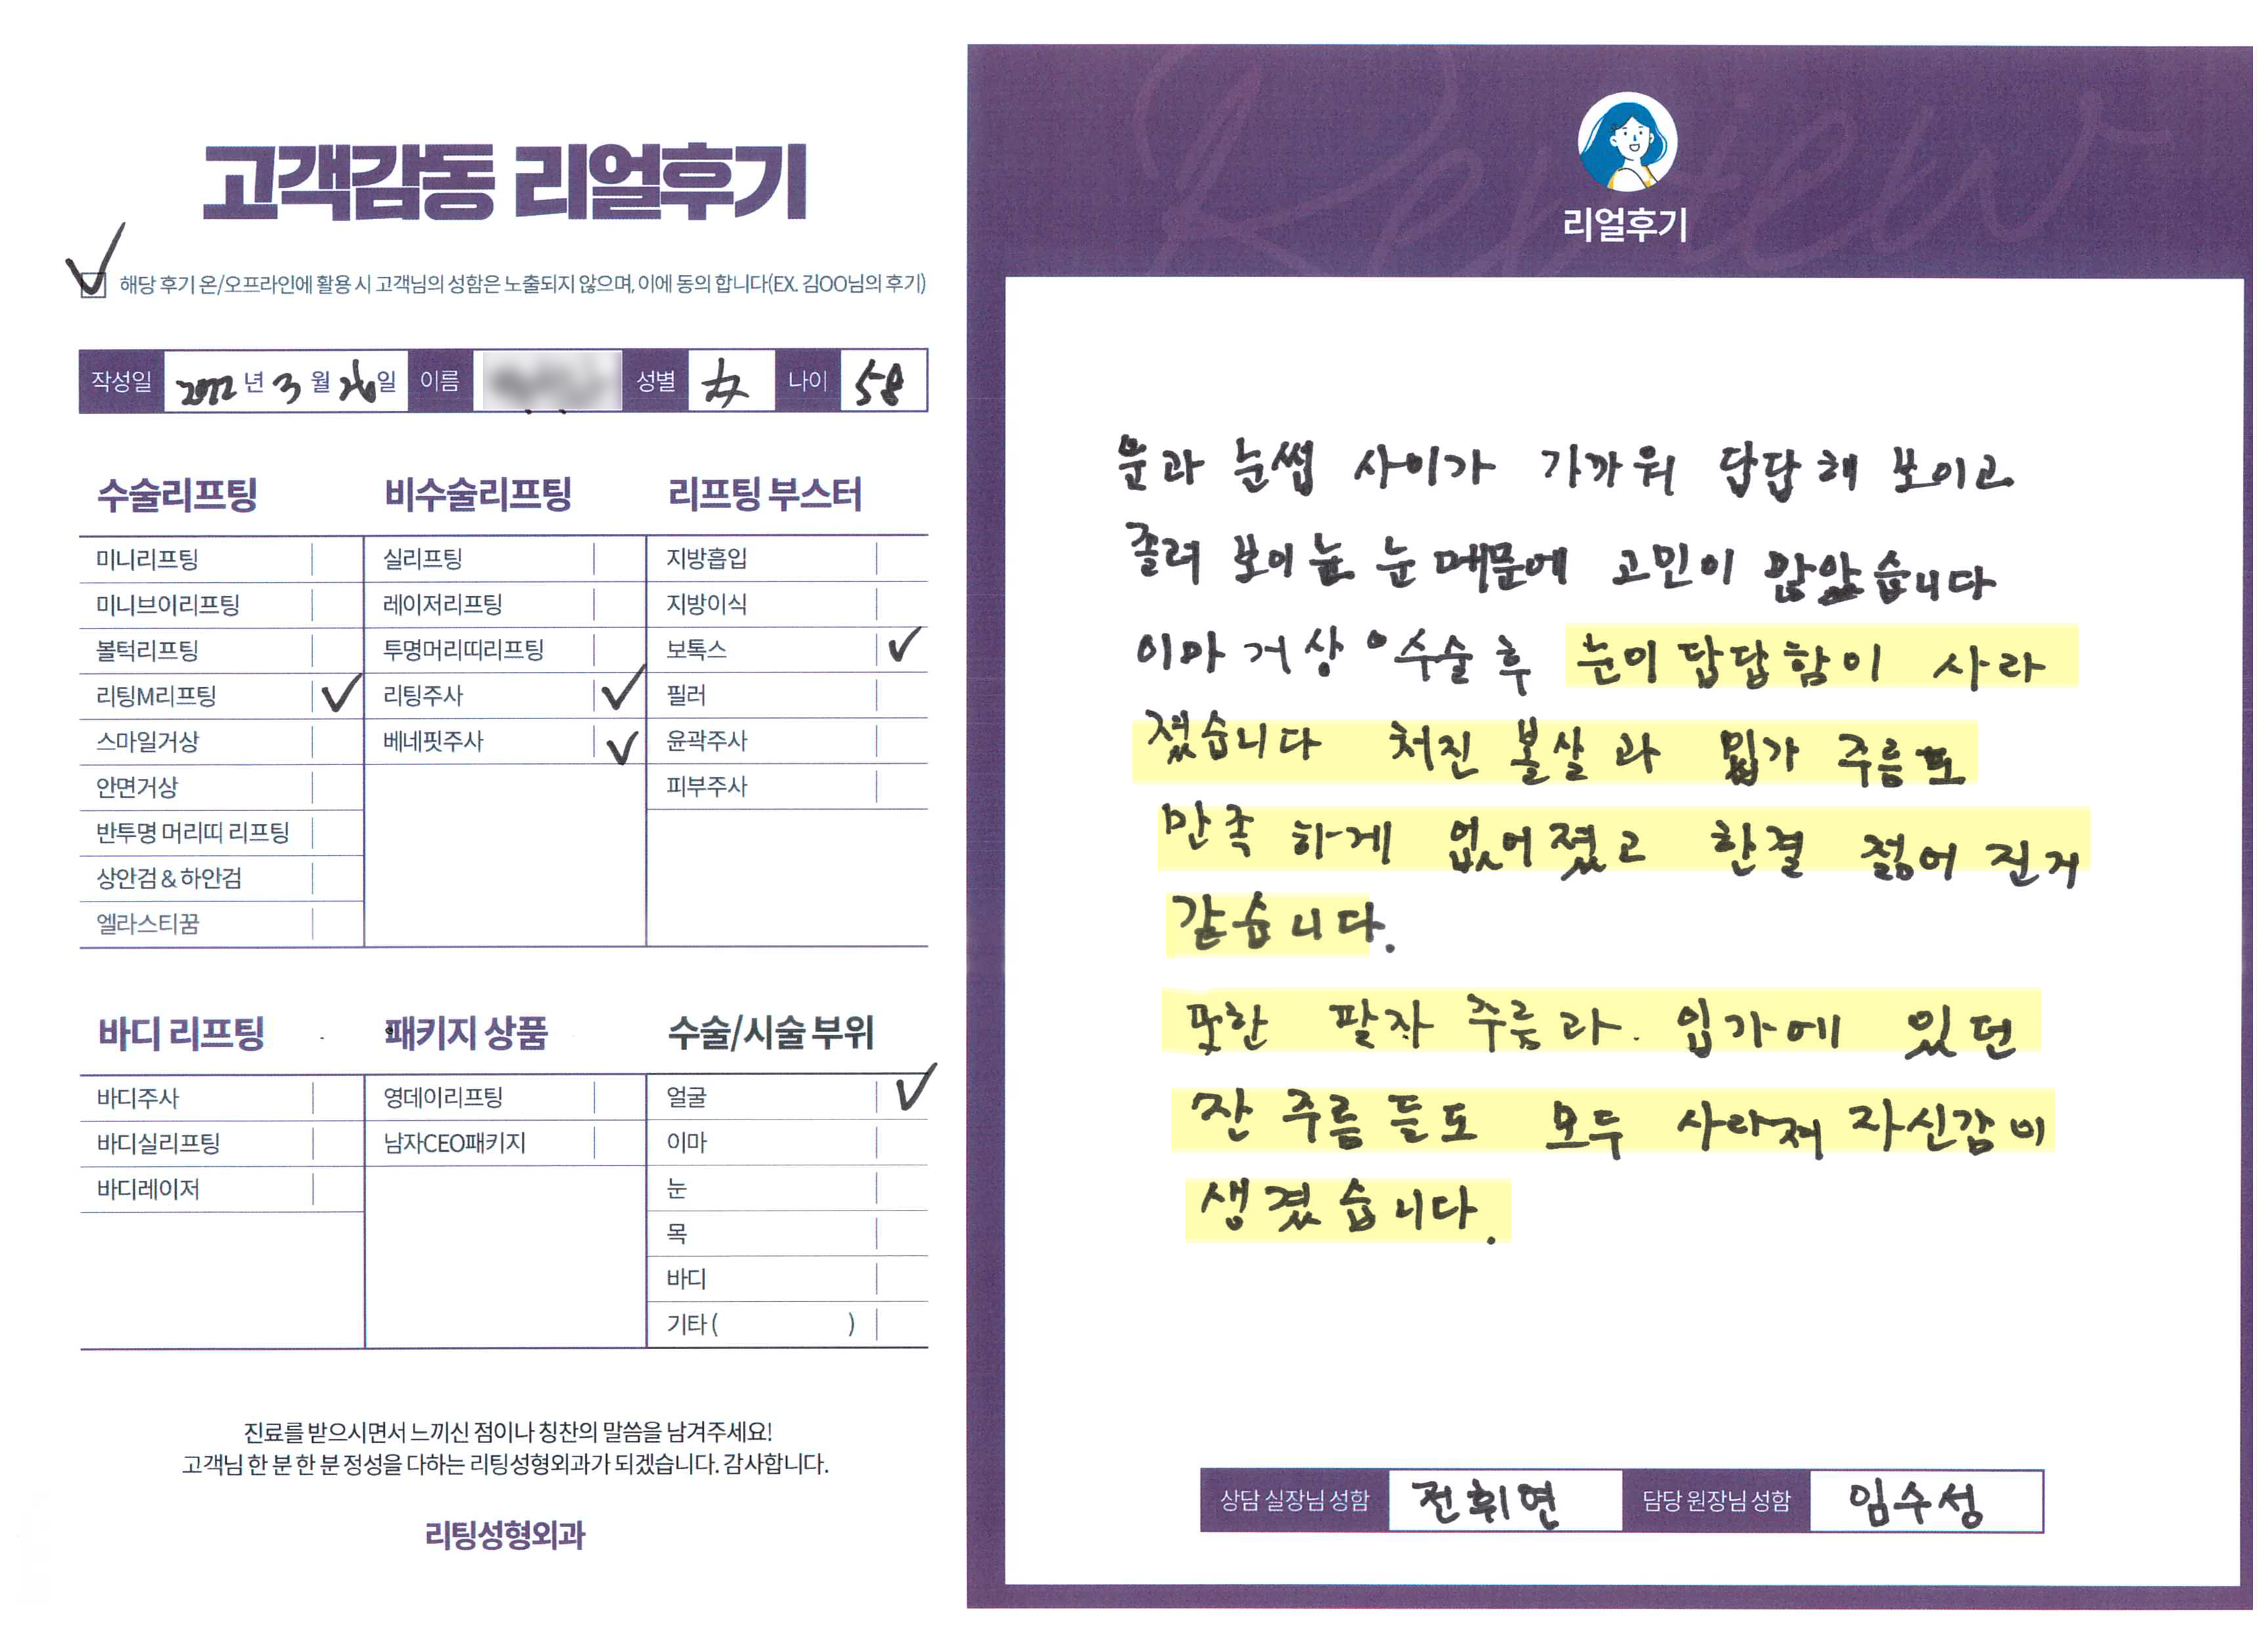 고객감동 리얼후기
해당 후기 온/오프라인에 활용 시 고객님의 성함은 노출되지 않으며, 이에 동의 합니다(EX. 김OO님의 후기)
작성일 2022년 3월 26일 이름 성별 女 나이 58
수술리프팅
미니리프팅
미니브이리프팅
볼턱리프팅
리팅M리프팅
스마일거상
안면거상
반투명 머리띠 리프팅
상안검 & 하안검
엘라스티꿈
비수술리프팅
실리프팅
레이저리프팅
투명머리띠리프팅
리팅주사
베네핏주사
리프팅 부스터
지방흡입
지방이식
보톡스
필러
윤곽주사
피부주사
바디 리프팅
바디주사
바디실리프팅
바디레이저
패키지 상품
영데이리프팅
남자CEO패키지
수술/시술 부위
얼굴
이마
눈
목
바디
기타 ( )
진료를 받으시면서 느끼신 점이나 칭찬의 말씀을 남겨주세요!
고객님 한 분 한 분 정성을 다하는 리팅성형외과가 되겠습니다. 감사합니다.
리팅성형외과
Review
리얼후기
눈과 눈썹 사이가 가까워 답답해 보이고
졸려 보이는 눈 때문에 고민이 많았습니다
이마 거상 수술 후 눈이 답답함이 사라
졌습니다 처진 볼살과 입가 주름도
만족 하게 없어졌고 한결 젊어 진거
같습니다.
또한 팔자 주름과. 입가에 있던
잔 주름 들도 모두 사라져 자신감이
생겼습니다.
상담 실장님 성함 전휘연 담당 원장님 성함 임수성